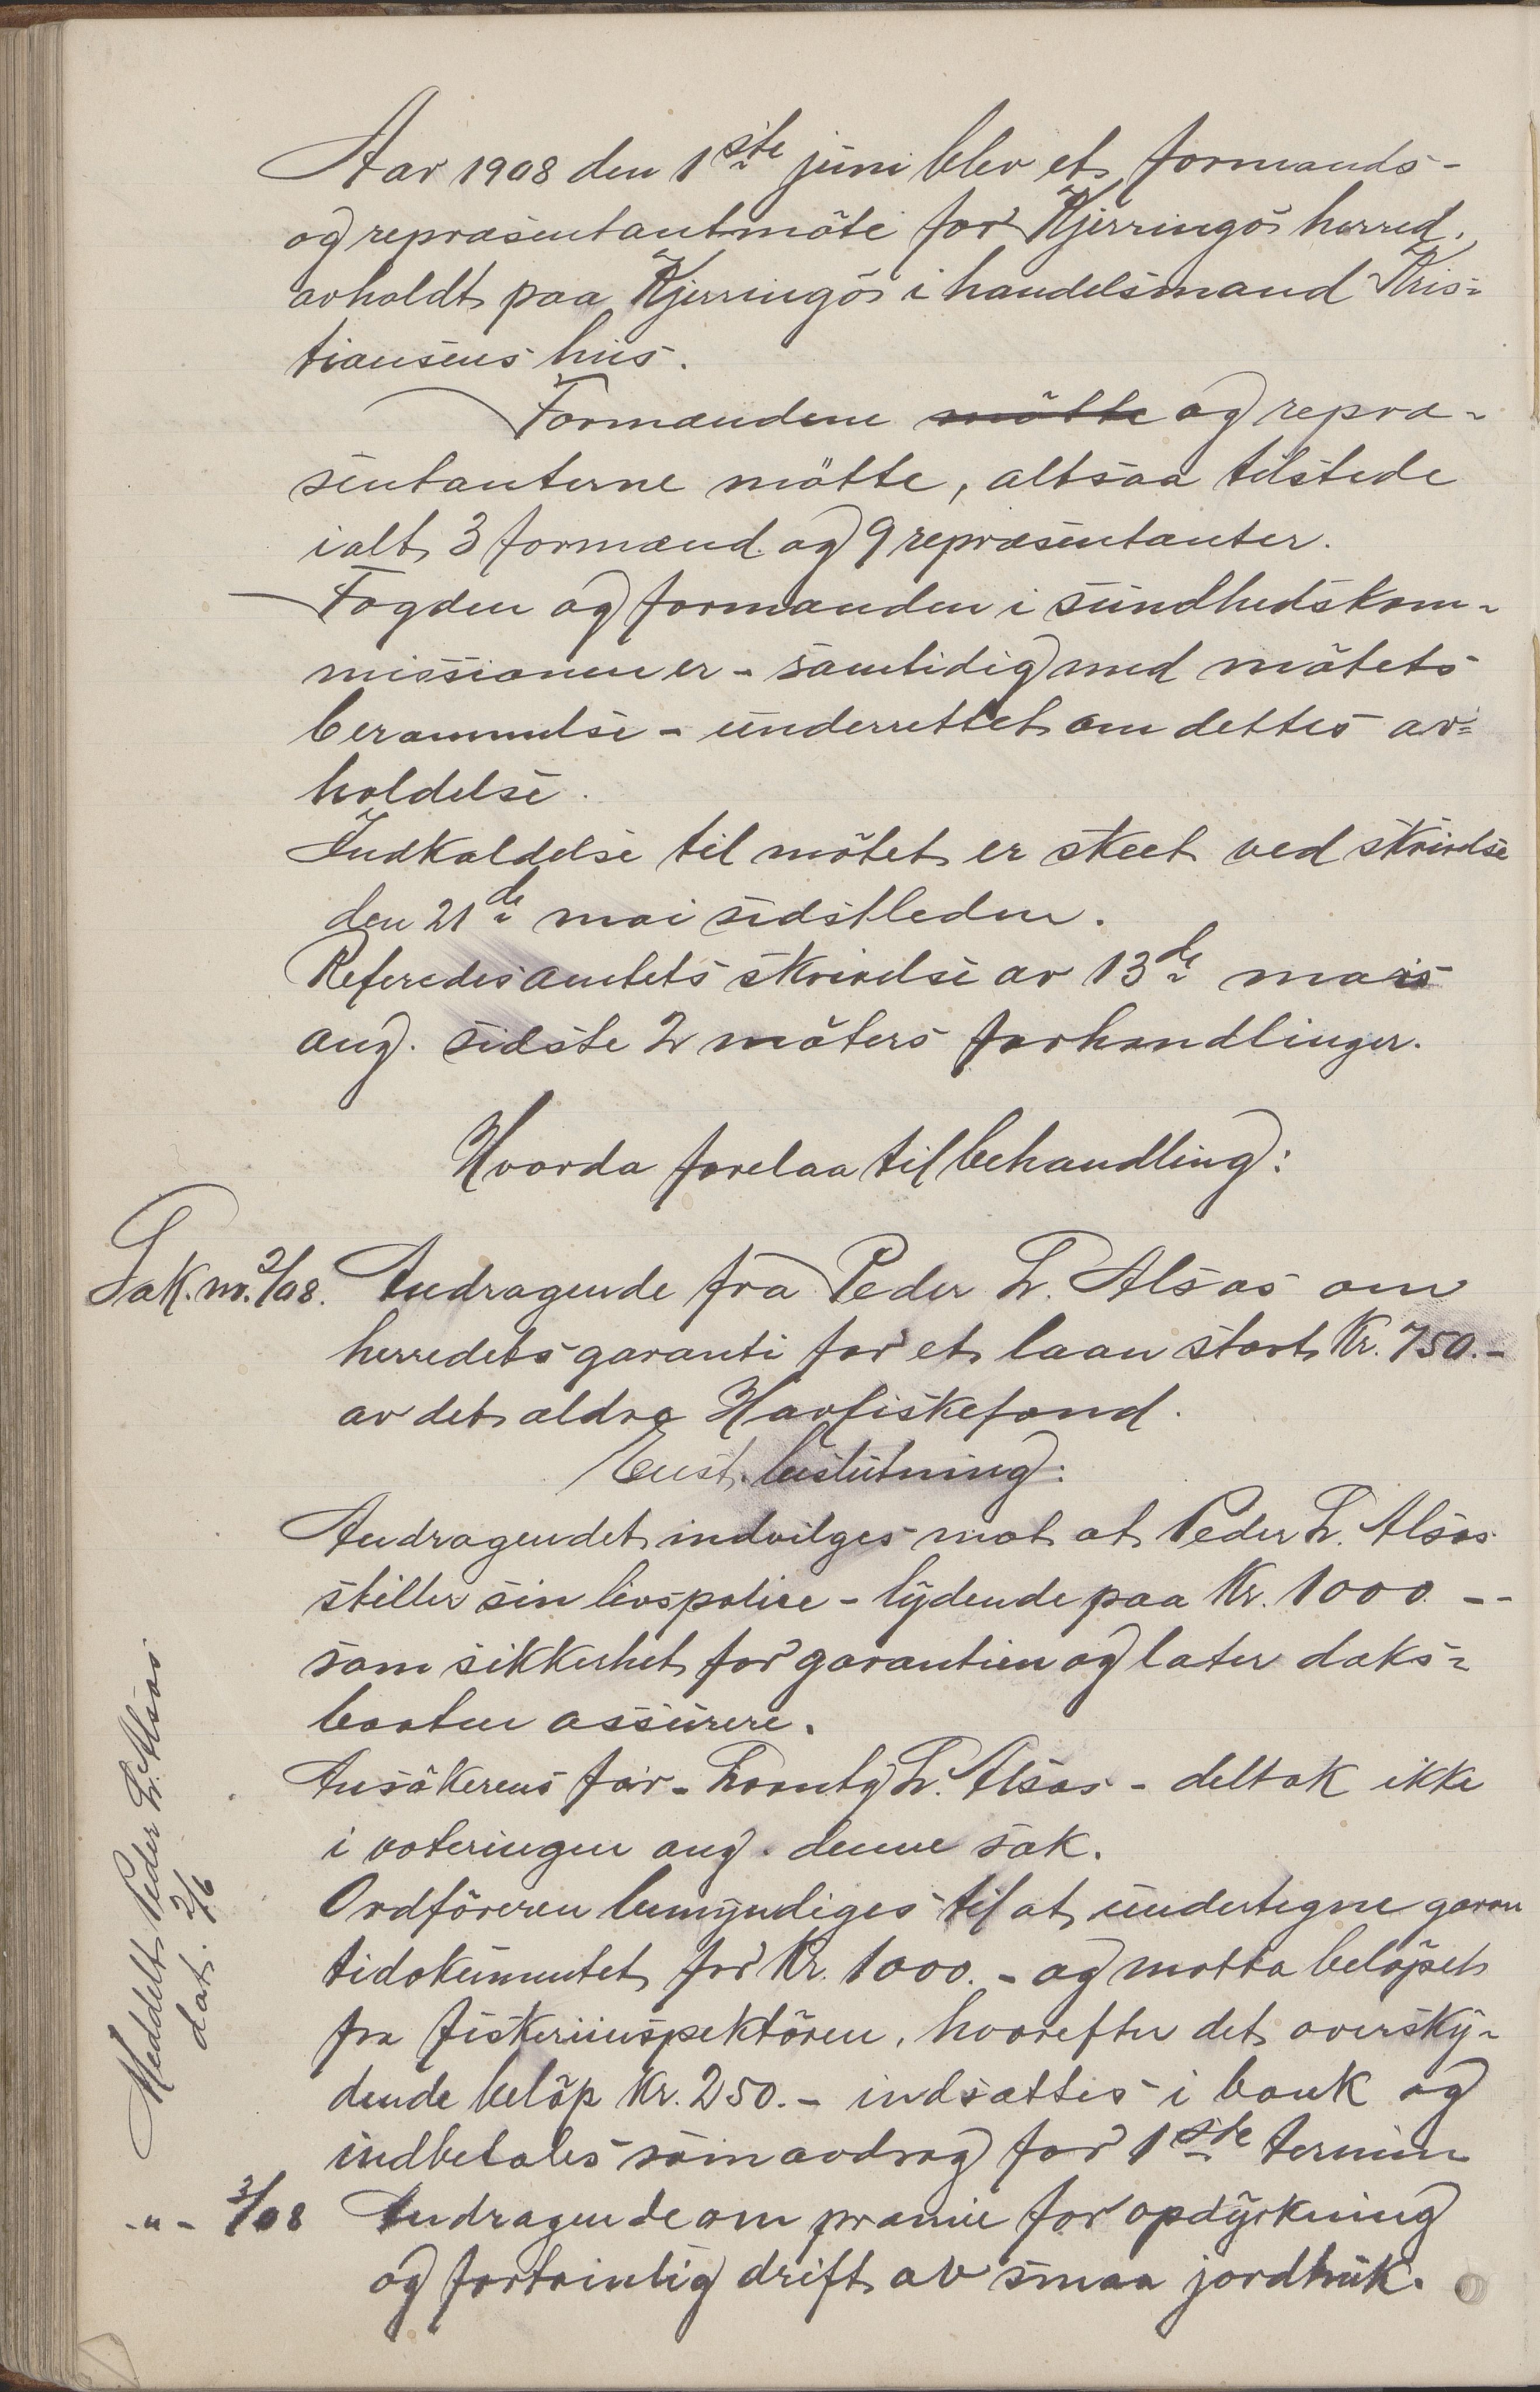 Aar 1908 den 1ste juni blev et formands-
og repræsentantmöte for Kjerringö herred.
avholdt paa Kjerringö i handelsmand Kris-
tiansens hus.
Formændene mötte og repræ-
sentanterne mötte, altsaa tilstede
ialt 3 formænd og 9 repræsentanter.
Fogden og formanden i sundhedskom-
missionen er - samtidig med mötets
berammelse - underrettet om dettes av-
holdelse.
Indkaldelse til mötet er skeet ved skrivelse
den 21de mai sidstleden.
Referedes amtets skrivelse av 13de mais
ang. sidste 2 möters forhandlinger.
Hvorda forelaa til behandling:
Sak. nr. 2/08. Andragende fra Peder L. Alsos om
herredets garanti for et laan stort Kr. 750.-
av det ældre Havfiskefond.
Enst. beslutning:
Andragendet indvilges mot at Peder L. Alsos
stiller sin livspolice - lydende paa Kr. 1000 --
som sikkerhet for garantien og later dæks-
baaten assurere.
Ansökerens far - L. Alsos - deltok ikke
i voteringen ang. denne sak.
Ordföreren bemyndiges til at undertegne garan
tidokumentet for Kr. 1000.- og motta belöpet
fra fiskeriinspektören, hvorefter det oversky-
dende belöp Kr. 250.- indsættes i bank og
indbetales som avdrag for 1ste termin
-"- 3/08 Andragende om præmie for opdyrkning
og fortrinlig drift av smaa jordbruk.
Meddelt Peder L. Alsos
dat. 2/6